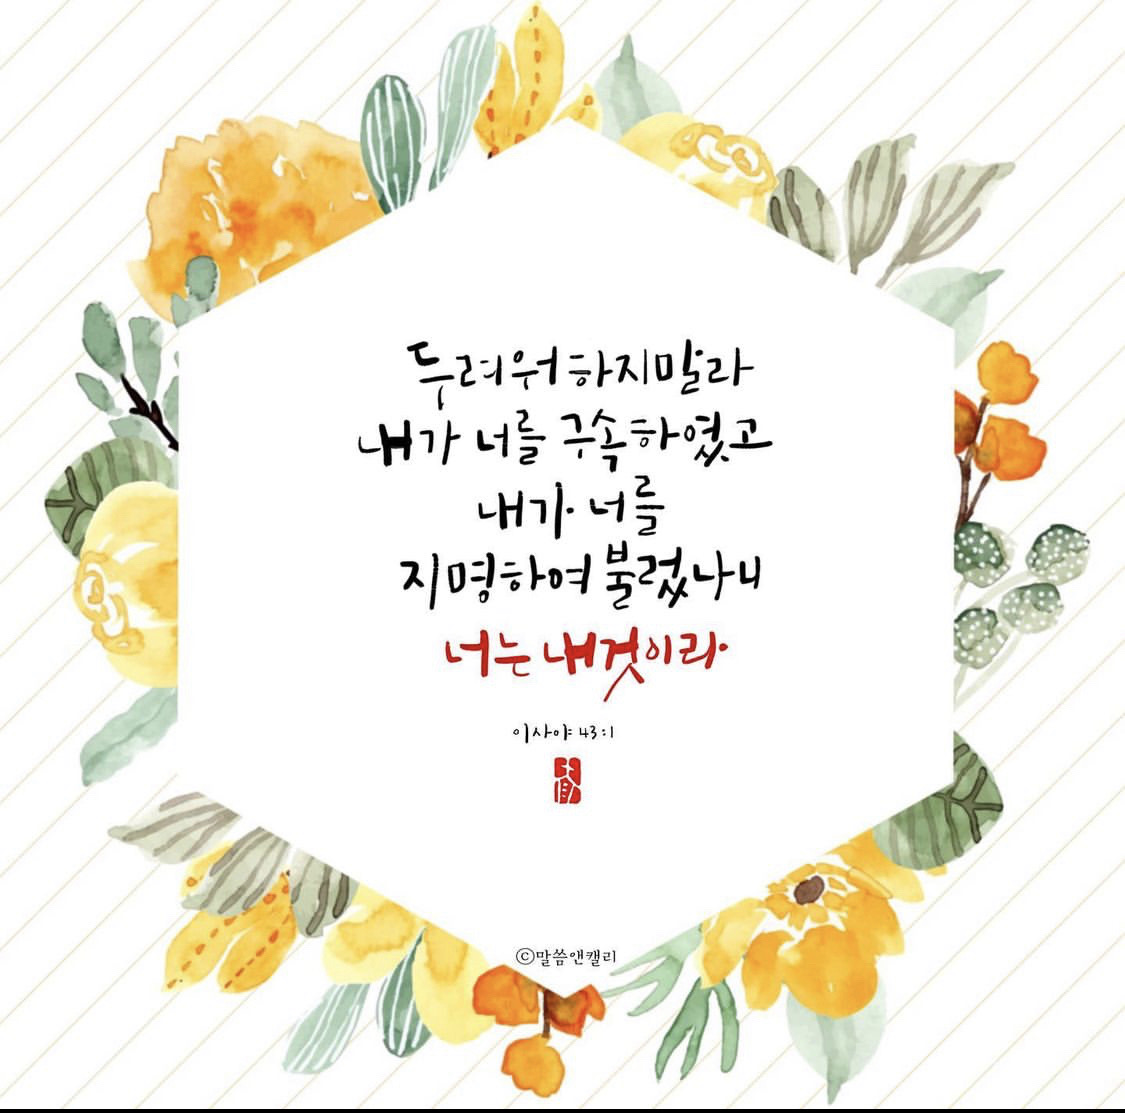 두려워하지말라
내가 너를 구속하였고
내가 너를
지명하여 불렀나니
너는 내것이라
이사야 43:1
ⓒ말씀앤캘리